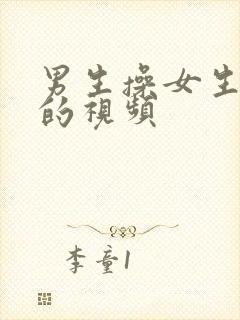 男生操女生
的視頻
李童1